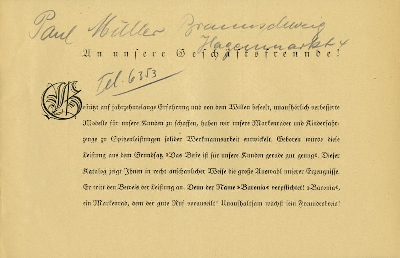 Paul Müller Braunschweig
Hagenmarkt 4
An unsere Geschäftsfreunde!
Tel. 6353
Gestützt auf jahrzehntelange Erfahrung und von dem Willen beseelt, unaufhörlich verbesserte
Modelle für unsere Kunden zu schaffen, haben wir unsere Markenräder und Kinderfahr-
zeuge zu Spitzenleistungen solider Werkmannsarbeit entwickelt. Geboren wurde diese
Leistung aus dem Grundsatz »Das Beste ist für unsere Kunden gerade gut genug«. Dieser
Katalog zeigt Ihnen in recht anschaulicher Weise die große Auswahl unserer Erzeugnisse.
Er tritt den Beweis der Leistung an. Denn der Name »Baronia« verpflichtet! »Baronia«,
ein Markenrad, dem der gute Ruf vorauseilt! Unaufhaltsam wächst sein Freundeskreis!